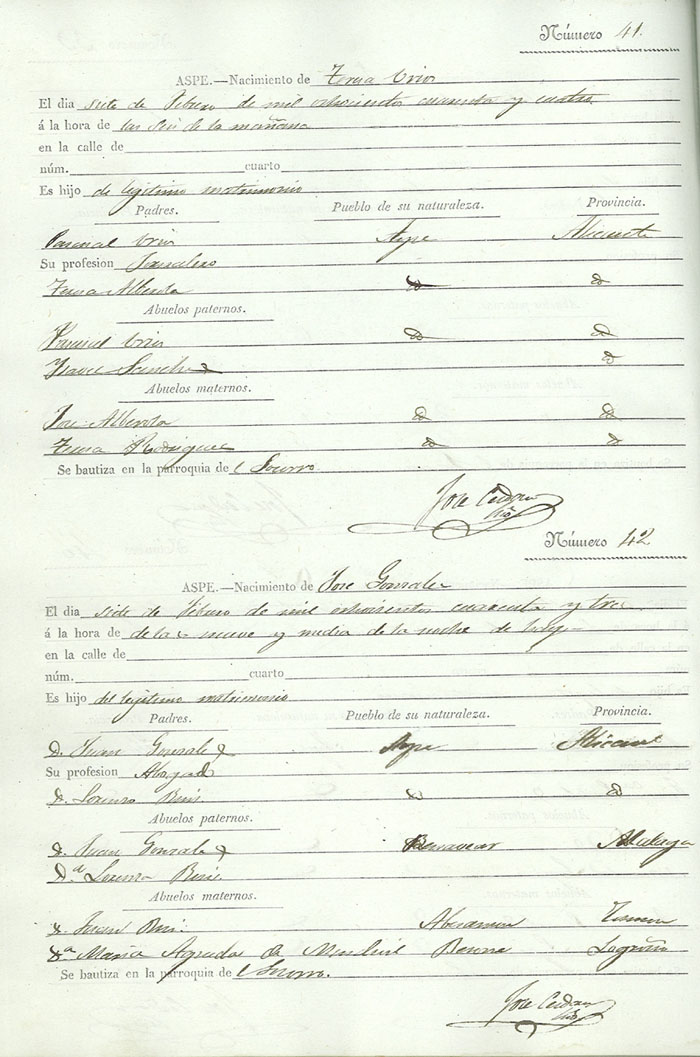 Número 41.
ASPE.—Nacimiento de Teresa Urios
El dia siete de Febrero de mil ochocientos cuarenta y cuatro
á la hora de las seis de la mañana
en la calle de
núm. cuarto
Es hijo de legitimo matrimonio
Padres. Pueblo de su naturaleza. Provincia.
Pascual Urios Aspe Alicante
Su profesion Jornalero
Teresa Alberola
Abuelos paternos.
Urios
Sanchez
Abuelos maternos.
Jose Alberola
Teresa Rodriguez
Se bautiza en la parroquia de el Socorro
Jose Cerdan
Número 42
ASPE.—Nacimiento de Jose Gonzalez
El dia siete de Febrero de mil ochocientos cuarenta y tres
á la hora de de las nueve y media de la noche de
en la calle de
núm. cuarto
Es hijo de legitimo matrimonio
Padres. Pueblo de su naturaleza. Provincia.
D. Juan Gonzalez Aspe Alicante
Su profesion Abogado
D. Lorenzo
Abuelos paternos.
D. Juan Gonzalez Malaga
D.ª Lorenza
Abuelos maternos.
D. Juan
D.ª Maria Logroño
Se bautiza en la parroquia de el Socorro.
Jose Cerdan